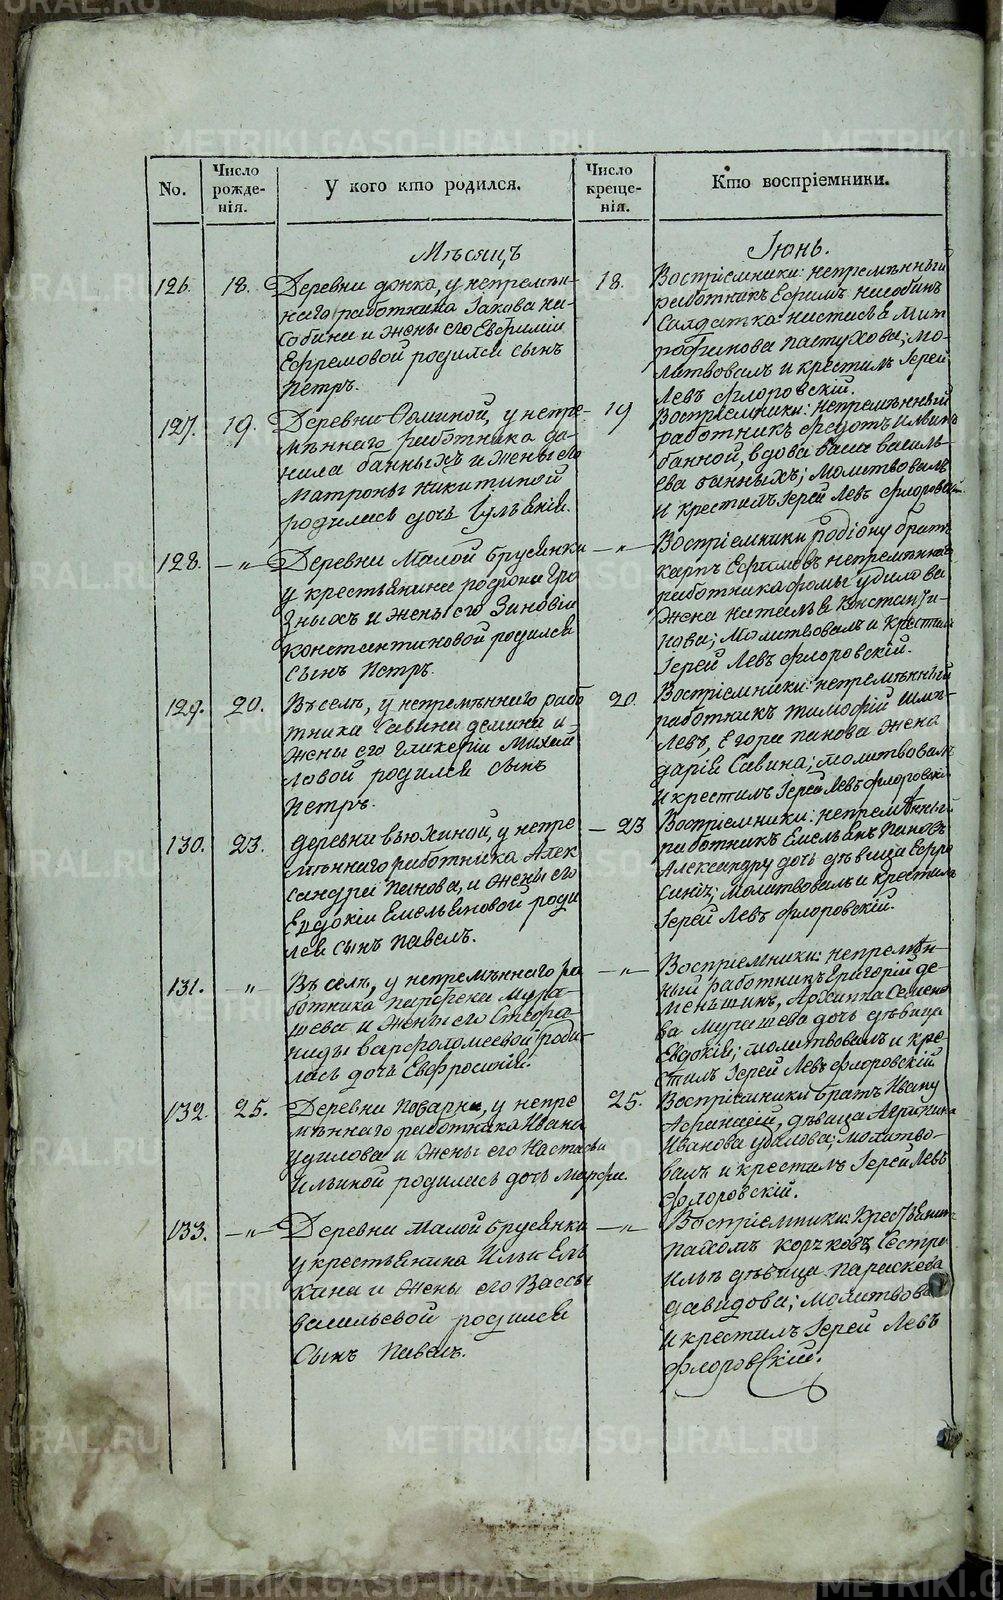 No.
Число рожде-нія.
У кого кто родился.
Число креще-нія.
Кто воспріемники.
Мѣсяцъ
Іюнь.
126.
18.
Деревни у непремѣн-
наго работника Іакова
и жены его Евфиміи
Ефремовой родился сынъ
Петръ.
18.
Воспріемники: непремѣнный
работникъ Ефимъ
Салдатка Мит
рофанова Пастухова; мо-
литвовалъ и крестилъ Іерей
Левъ Флоровскій.
127.
19.
Деревни у непре-
мѣннаго работника Да-
нила банныхъ и жены его
Матроны Никитиной
родилась дочь Іульянія.
19
Воспріемники: Непремѣнный
работникъ Федотъ
банной, вдова Василь-
ева банныхъ; Молитвовалъ
и крестилъ Іерей Левъ Флоровскій
128.
— „ —
Деревни Малой Брусянки
у крестьянина Родіона Гря
зныхъ и жены его Зиновіи
Константиновой родился
сынъ Петръ.
— „ —
Воспріемники Родіону братъ
Карпъ Ефимовъ непремѣннаго
работника Фомы Удилова
жена Наталья Константи-
нова; Молитвовалъ и крестилъ
Іерей Левъ Флоровскій.
129.
20.
Въ селѣ, у непремѣннаго рабо
тника Савина Демина и
жены его Гликеріи Михай
ловой родился сынъ
Петръ.
20.
Воспріемники: непремѣнный
работникъ Тимофій
Егора Панова жена
Дарія Савина; молитвовалъ
и крестилъ Іерей Левъ Флоровскій
130.
23.
Деревни Вьюхиной, у непре
мѣннаго работника Алек
сандра Панова, и жены его
Евдокіи Емельяновой роди
лся сынъ Павелъ.
— 23
Воспріемники: непремѣнный
работникъ Емельянъ Пановъ
Александру дочь дѣвица Евфро
синія; молитвовалъ и крестилъ
Іерей Левъ Флоровскій.
131.
— „ —
Въ селѣ, у непремѣннаго ра
ботника Мура-
шева и жены его Стефа-
ниды Варфоломеевой роди-
лась дочь Евфросинія.
— „ —
Воспріемники: непремѣн-
ный работникъ Григорій Де-
меньшинъ, Архиппа Семено
ва Мурашева дочь дѣвица
Евдокія; молитвовалъ и кре-
стилъ Іерей Левъ Флоровскій
132.
25.
Деревни Поварни, у непре
мѣннаго работника Ивана
Удилова и жены его Настасьи
Ильиной родилась дочь Марфа.
25.
Воспріемники братъ Ивану
Афанасій, дѣвица Агрипина
Иванова Удилова; молитво-
валъ и крестилъ Іерей Левъ
Флоровскій.
133.
— „ —
Деревни Малой Брусянки
у крестьянина Ильи Ель
кина и жены его Вассы
Васильевой родился
Сынъ Павелъ.
— „ —
Воспріемники: Крестьянинъ
Пахомъ Корчковъ, Сестра
Ильѣ дѣвица Параскева
Давидова; Молитвовалъ
и крестилъ Іерей Левъ
Флоровскій.
METRIKI.GASO-URAL.RU